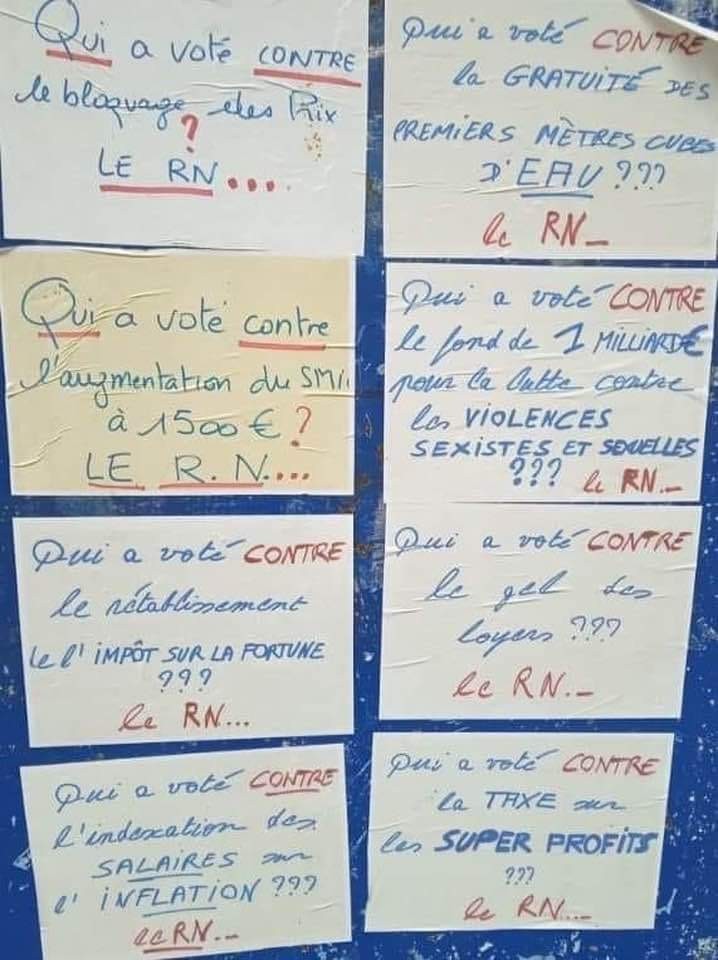 Qui a voté CONTRE
le bloquage des Prix
?
LE RN....
Qui a voté CONTRE
la GRATUITÉ DES
PREMIERS MÈTRES CUBES
D'EAU ???
le RN_
Qui a voté contre
l'augmentation du SMIC
à 1500 € ?
LE R.N....
Qui a voté CONTRE
le fond de 1 MILLIARD€
pour la lutte contre
les VIOLENCES
SEXISTES ET SEXUELLES
??? le RN._
Qui a voté CONTRE
le rétablissement
de l'IMPÔT SUR LA FORTUNE
???
le RN...
Qui a voté CONTRE
le gel des
loyers ???
le RN._
Qui a voté CONTRE
l'indexation des
SALAIRES sur
l'INFLATION ???
le RN._
Qui a voté CONTRE
la TAXE sur
les SUPER PROFITS
???
le RN....